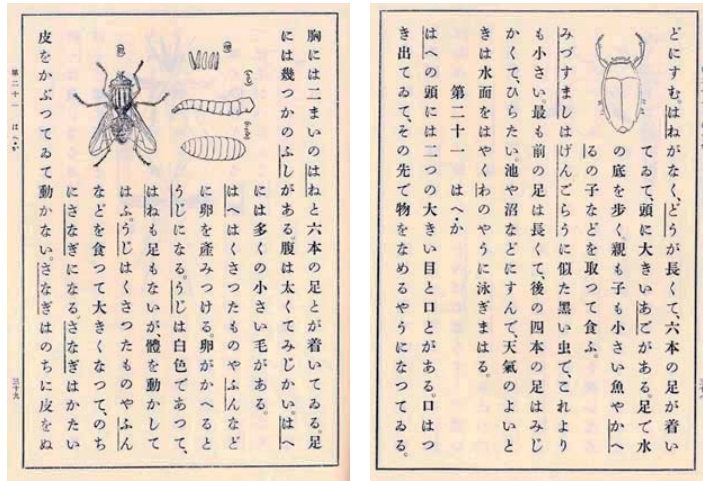 どにすむ。はねがなく、どうが長くて、六本の足が着い
てゐて、頭に大きいあごがある。足で水
の底を歩く。親も子も小さい魚やかへ
るの子などを取つて食ふ。
みづすましはげんごらうに似た黒い虫で、これより
も小さい。最も前の足は長くて、後の四本の足はみじ
かくて、ひらたい。池や沼などにすんで、天氣のよいと
きは水面をはやくわのやうに泳ぎまはる。
第二十一 はへ・か
はへの頭には二つの大きい目と口とがある。口はつ
き出てゐて、その先で物をなめるやうになつてゐる。
胸には二まいのはねと六本の足とが着いてゐる。足
には幾つかのふしがある。腹は太くてみじかい。はへ
には多くの小さい毛がある。
はへはくさつたものやふんなど
に卵を產みつける。卵がかへると
うじになる。うじは白色であつて、
はねも足もないが、體を動かして
はふ。うじはくさつたものやふん
などを食つて大きくなつて、のち
にさなぎになる。さなぎはかたい
皮をかぶつてゐて動かない。さなぎはのちに皮をぬ
第二十一 はへ・か
三十九